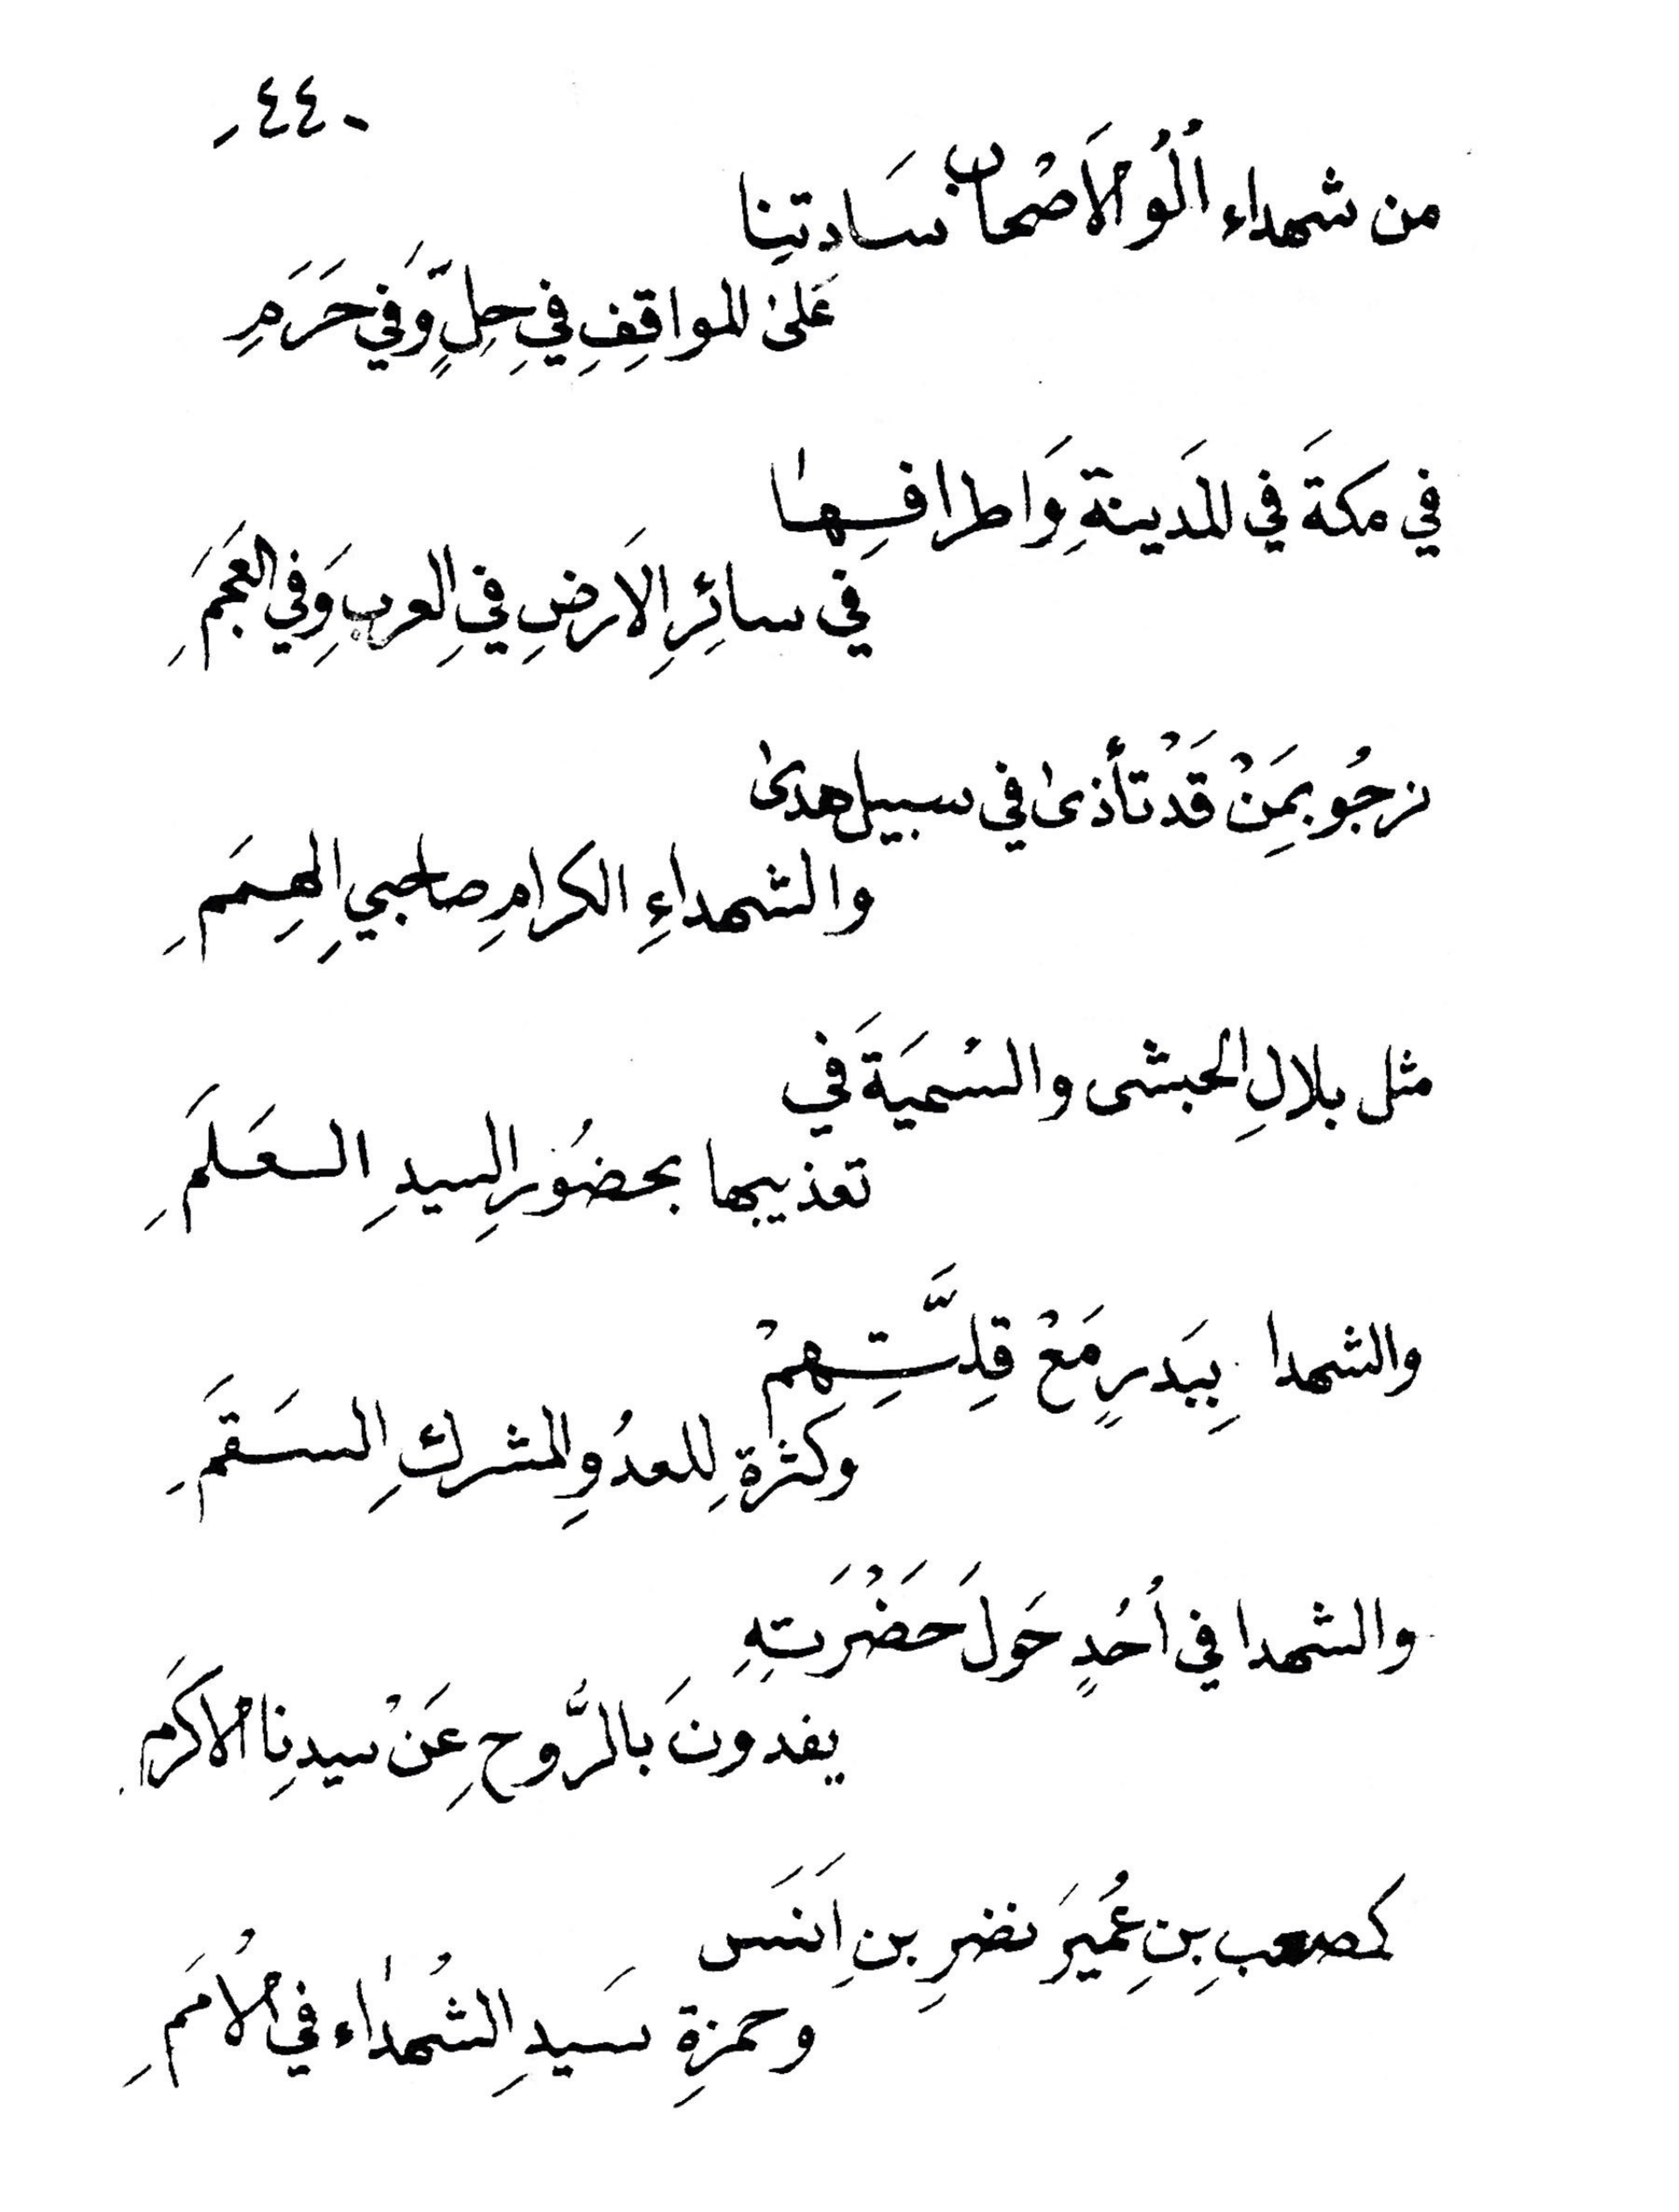 -٤٤-
من شهداء اُلُو الاَصْحاب سَادتِنا
عَلىٰ المواقِفِ فِي حِلٍّ وَفي حَرَمِ
في مكةَ في المَدينةِ وَاطرافِها
في سائِرِ الاَرضِ فِي العربِ وَفي العَجَمِ
نرجُو بمَنْ قَدْ تأذىٰ في سبيل هدىٰ
والشهداءِ الكرامِ صاحبيِ الهِمَمِ
مثل بلالِ الحبشى والسُميَةَ في
تعذيبها بحضُورِ السيدِ العَلَمِ
والشهدا بِبَدرٍ مَعْ قِلَّتِهِمْ
وكثرةِ للعدُوِ المشركِ السَقَمِ
والشهدا في اُحُدٍ حَولَ حَضْرَتِهِ
يفدونَ بالرُّوحِ عَنْ سيدِنا الاكرَم
كمصعبِ بنِ عُمَيرَ نضرِ بنِ اَنَس
وحمزةِ سَيدِ الشُهدٰاء في الاُمَمِ